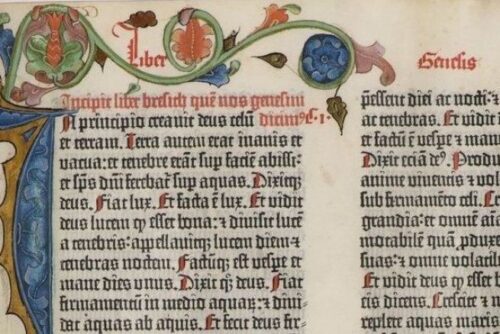 Liber
Genesis
Incipit liber bresith quē nos genesim
dicim⁹ c̄ ·1·
In principio creauit deus celū
et terram. Terra autem erat inanis et
vacua: et tenebre erāt sup faciē abissi:
et sp̄s dn̄i ferebat̉ sup aquas. Dixitqꝫ
deus. Fiat lux. Et facta ē lux. Et vidit
deus lucem ꝙ esset bona: ⁊ diuisit lucē
a tenebris: appellauitqꝫ lucem diem ⁊
tenebras noctem. Factūqꝫ est vespe et
mane dies vnus. Dixit qꝫ deus. Fiat
firmamentū in medio aquaꝝ: ⁊ diui
dat aquas ab aquis. Et fecit deus fir
pessent diei ac nocti: ⁊
ac tenebras. Et vidit
et factū ē vespe ⁊ man
Dixit eciā de⁹. Produ
anime viuentis ⁊ vol
sub firmamento celi.
grandia: et omnē ai
motabilē quā pduxe
suas: ⁊ omne volatil
Et vidit deus ꝙ esset
cis dicens. Crescite ⁊
replete aquas maris